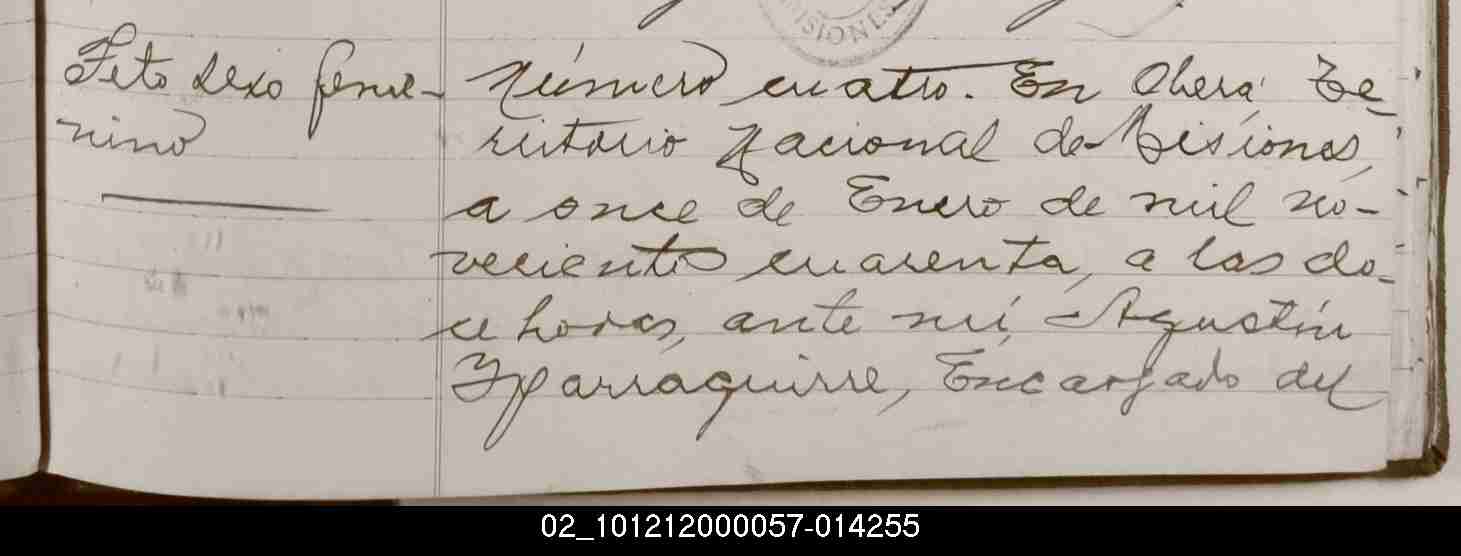 MISIONES
Feto sexo feme-
nino
Número cuatro. En Oberá, Te-
rritorio Nacional de Misiones,
a once de Enero de mil no-
vecientos cuarenta, a las do-
ce horas, ante mí, Agustín
Yparraguirre, Encargado del
02_101212000057-014255